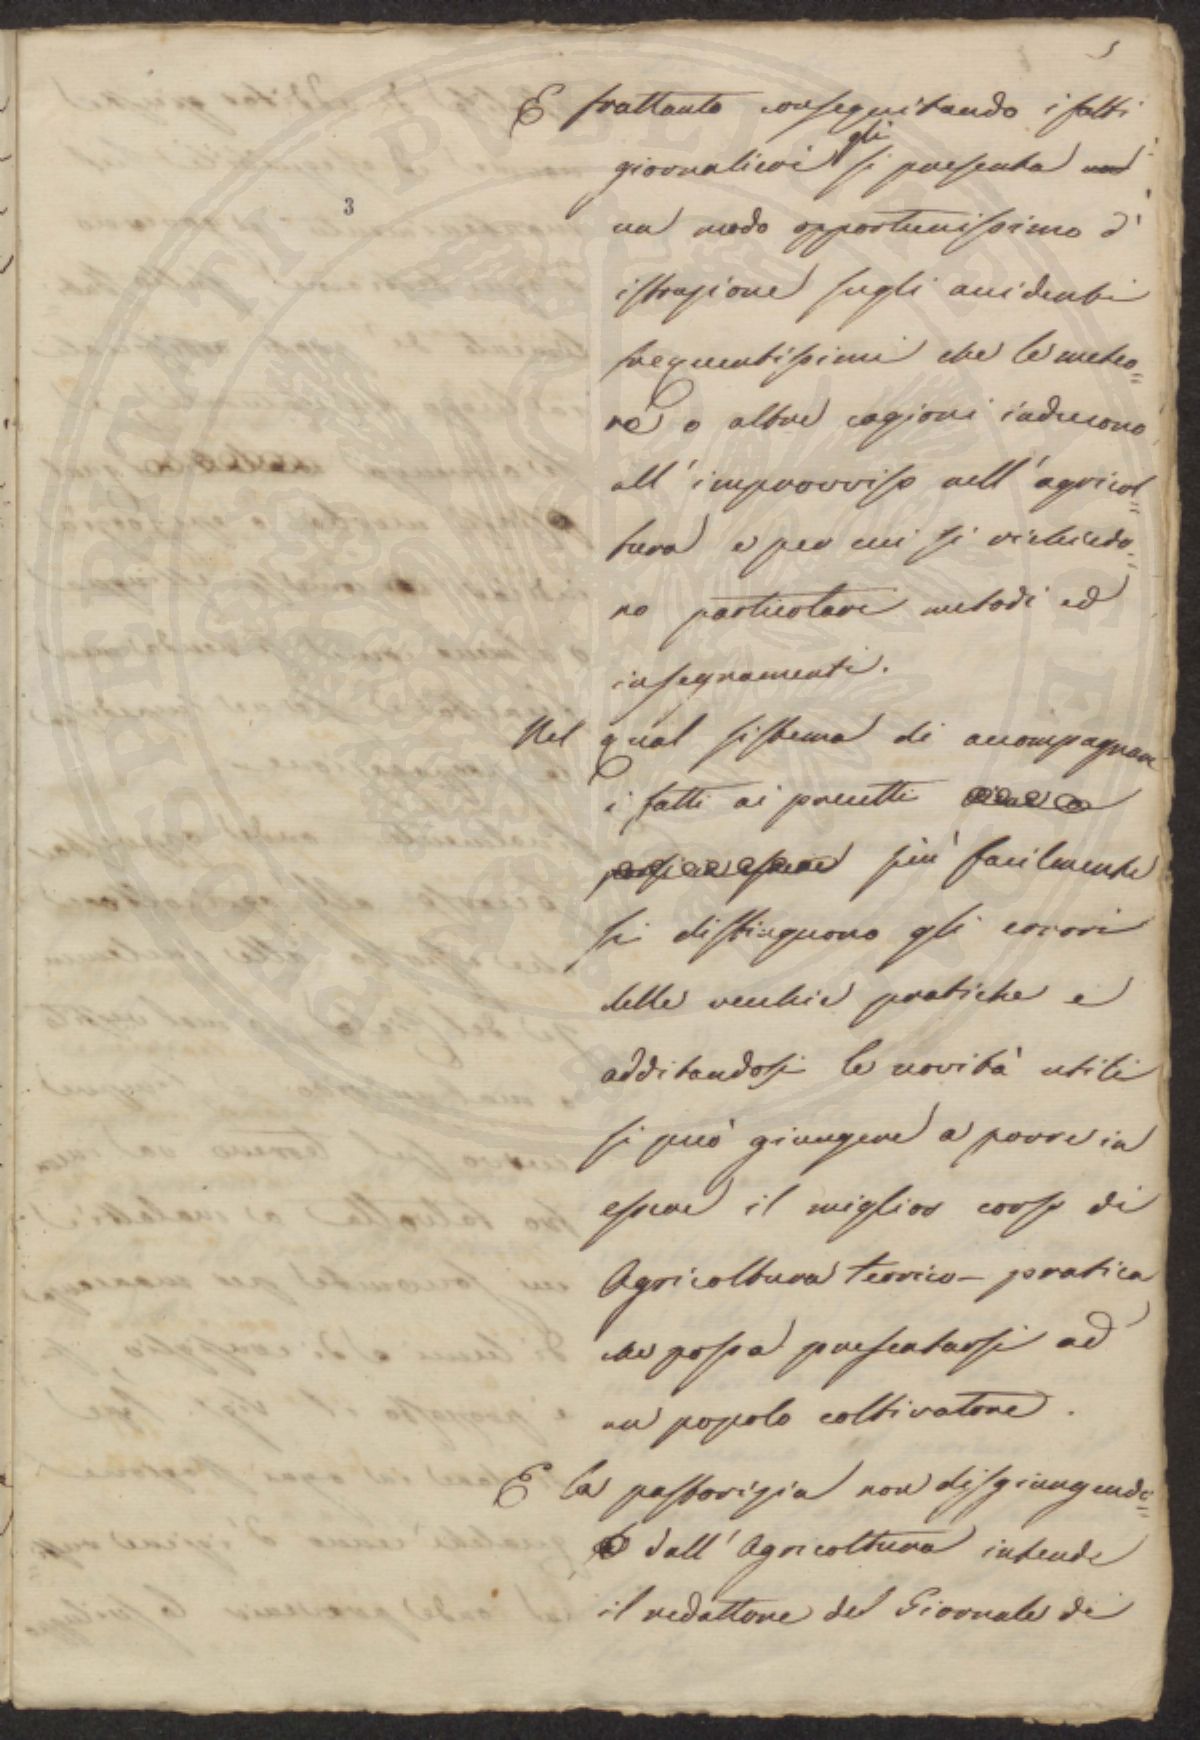 5
3
E frattanto conseguitando i fatti
giornalieri gli si presenta
un modo opportunissimo d'
istruzione sugli accidenti
frequentissimi che le meteo=
re o altre cagioni inducono
all'improvviso nell'agricol=
tura e per cui si richiedo=
no particolari metodi ed
insegnamenti.
Nel qual sistema di accompagnare
i fatti ai precetti
più facilmente
si distinguono gli errori
delle vecchie pratiche e
additandosi le novità utili
si può giungere a porre in
essere il miglior corso di
Agricoltura teorico-pratica
che possa presentarsi ad
un popolo coltivatore.
E la pastorizia non disgiungendo=
dall'Agricoltura intende
il redattore del Giornale di